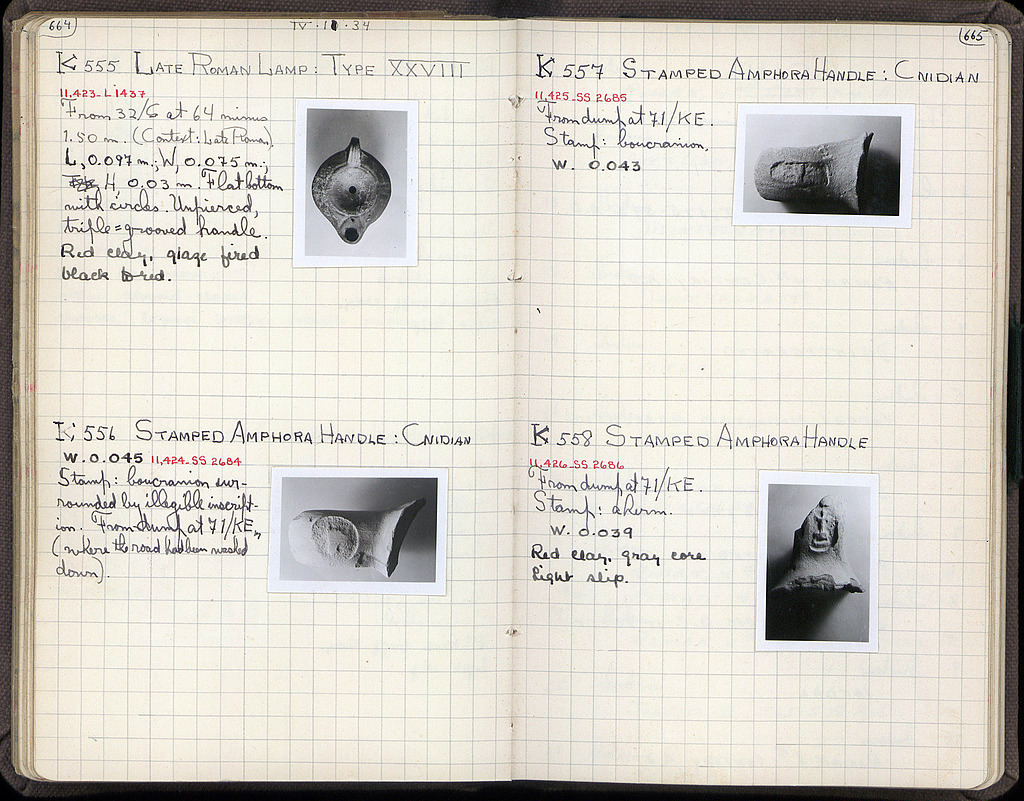 664
IV·11·34
K 555 LATE ROMAN LAMP: TYPE XXVIII
11,423-L 1437
From 32/ at 64 minus
1.50 m. (Context: Late Roman).
L, 0.097 m.; W, 0.075 m.;
H, 0.03 m. Flat bottom
with circles. Unpierced,
triple=grooved handle.
Red clay, glaze fired
black to red.
K 556 STAMPED AMPHORA HANDLE: CNIDIAN
W. 0.045 11,424-SS 2684
Stamp: boucranion sur-
rounded by illegible inscript-
ion. From dump at 71/KE,
(where the road had been washed
down).
665
K 557 STAMPED AMPHORA HANDLE: CNIDIAN
11,425-SS 2685
From dump at 71/KE.
Stamp: boucranion.
W. 0.043
K 558 STAMPED AMPHORA HANDLE
11,426-SS 2686
From dump at 71/KE.
Stamp: a herm.
W. 0.039
Red clay, gray core
Light slip.